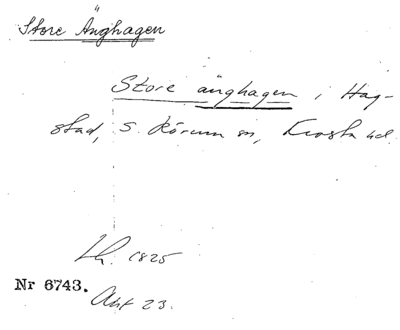 Store Änghagen
Store änghagen i Hag-
stad, S. Rörum sn, Frosta hd.
Lh. 1825
Nr 6743.
Akt 23.